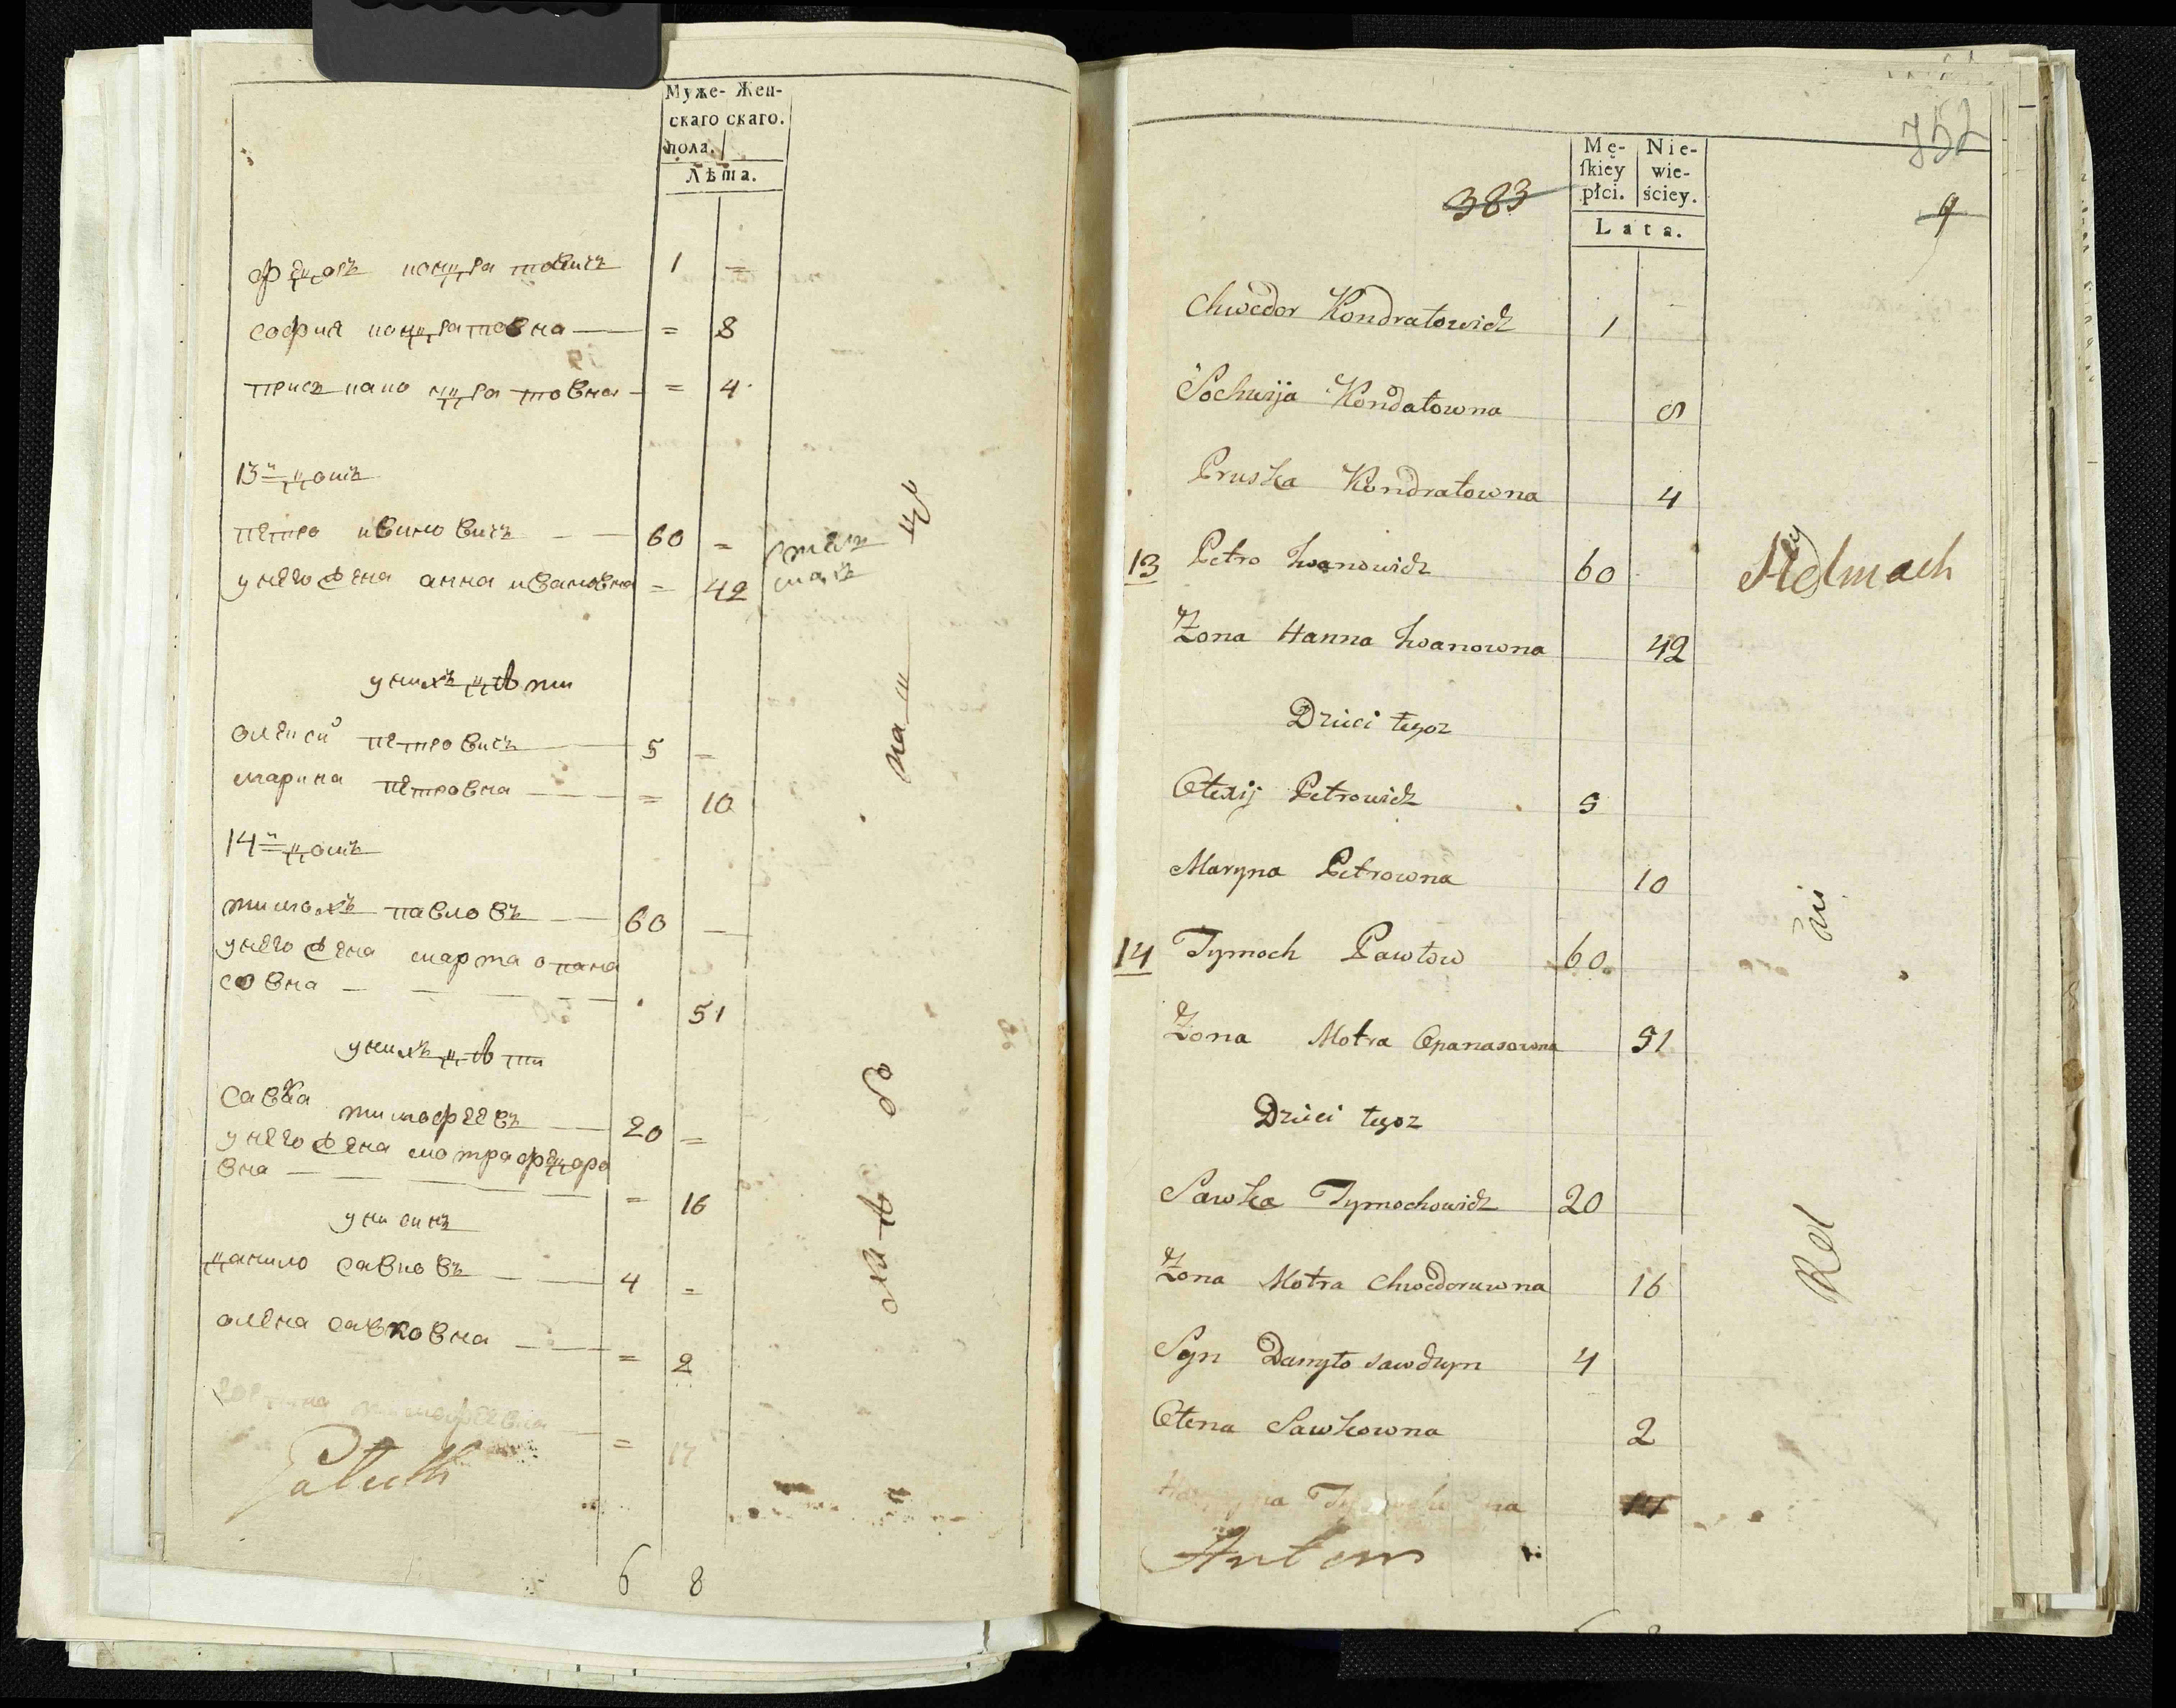 Муже- Жен-
скаго скаго.
пола.
Лѣта.
федоръ кондратовичъ 1 =
софия кондратовна = 8
приска кондратовна = 4
13й домъ
петро ивановичъ 60 =
у него жена анна ивановна = 42
у нихъ дѣти
олексѝй петровичъ 5 =
марина петровна = 10
14й домъ
тимохъ павловъ 60
у него жена марта опана
совна 51
у нихъ дѣти
савка тимофеевъ 20 =
у него жена мотра федоро
вна = 16
у ни синъ
данило савковъ 4 =
олена савковна = 2
тимофеевна = 17
6 8
752
383
9
Mę- Nie-
ſkiey wie-
płci. ściey.
Lata.
Chwedor Kondratowicz 1
Sochwija Kondatowna 8
Pruska Kondratowna 4
13 Petro Iwanowicz 60 Stelmach
Żona Hanna Iwanowna 42
Dzieci tegoz
Olexij Petrowicz 5
Maryna Petrowna 10
14 Tymoch Pawłow 60
Żona Motra Opanasowna 51
Dzieci tegoz
Sawka Tymochowicz 20
Żona Motra Chwedorowna 16
Syn Danyło Sawczyn 4
Ołena Sawkowna 2